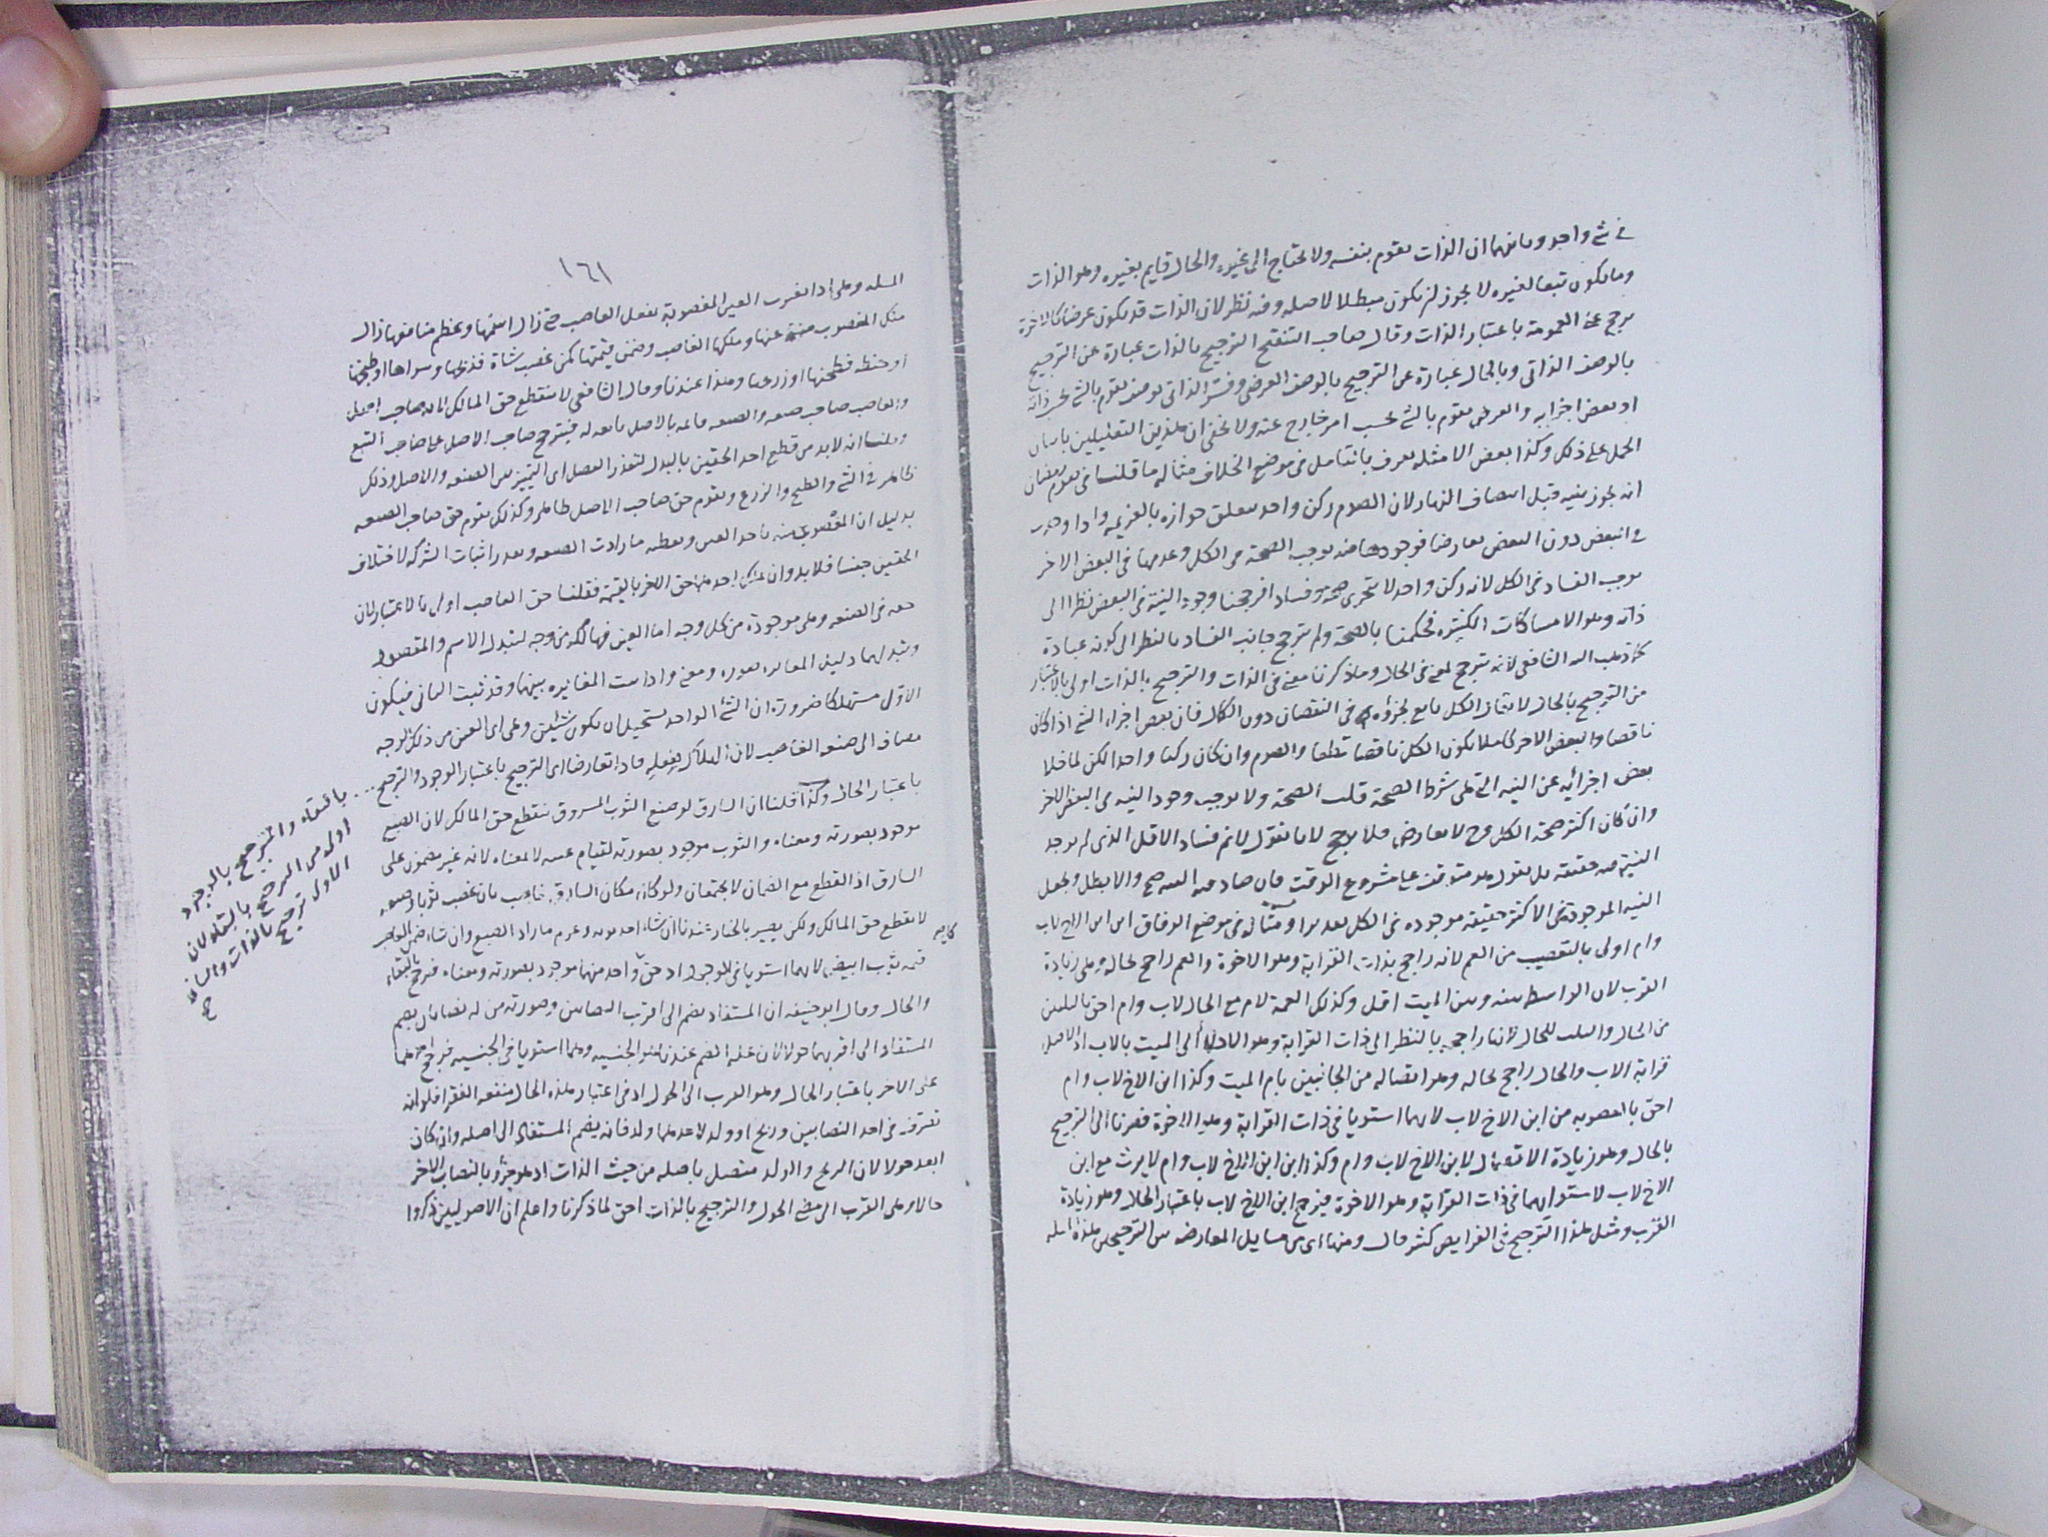 في شيء واحد وثانيهما ان الذات يقوم بنفسه ولا يحتاج الى غيره والحال قايم بغيره وهو الذات
وما يكون تبعا لغيره لا يجوز ان يكون مبطلا لاصله وفيه نظر لان الذات قد يكون عرضا كالاخوة
يرجح على العمومة باعتبار الذات وقال صاحب التنقيح الترجيح بالذات عبارة عن الترجيح
بالوصف الذاتي وبالحال عبارة عن الترجيح بالوصف العرضي وفسر الذاتي بوصف يقوم بالشيء بحسب ذاته
او بعض اجزايه والعرضي يقوم بالشيء بحسب امر خارج عنه ولا يخفى ان هذين التعليلين يابيان
الحمل على ذلك وكذا بعض الامثلة يعرف بالتامل في موضع الخلاف مثاله ما قلنا في صوم رمضان
انه يجوز بنية قبل انتصاف النهار لان الصوم ركن واحد يتعلق جوازه بالعزيمة واذا وجدت
في البعض دون البعض تعارضا فوجودها منه يوجب الصحة في الكل وعدمها في البعض الاخر
يوجب الفساد في الكل لانه ركن واحد لا يتجزى صحة وفسادا فرجحنا وجود النية في البعض نظرا الى
ذاته وهو الامساكات الكثيرة فحكمنا بالصحة ولم يترجح جانب الفساد بالنظر الى كونه عبادة
كما ذهب اليه الشافعي لانه ترجيح لمعنى في الحال وما ذكرنا معنى في الذات والترجيح بالذات اولى بالاعتبار
من الترجيح بالحال لا يقال الكل تابع لجزؤه في النقصان دون الكمال فان بعض اجزاء الشيء اذا كان
ناقصا والبعض الاخر كاملا يكون الكل ناقصا قطعا والصوم وان كان ركنا واحدا لكن لما خلا
بعض اجزائه عن النية التي هي شرط الصحة قلت الصحة ولا يوجب وجود النية في البعض الاخر
وان كان اكثر صحة الكل وح لا تعارض فلا ترجيح لانا نقول لانم فساد الاقل الذي لم يوجد
النية فيه حقيقة بل نقول هو متوقف عليا مشروع الوقت فان صادفه الصحيح والا بطل ويجعل
النية الموجودة في الاكثر حقيقة موجودة في الكل تقديرا ومثاله في موضع الوفاق ابن ابن الاخ لاب
وام اولى بالتعصيب من العم لانه راجح بذات القرابة وهو الاخوة والعم راجح بحاله وهي زيادة
القرب لان الواسطة بينه وبين الميت اقل وكذلك العمة لام مع الخال لاب وام احق بالثلثين
من الخال والثلث للخال لانها راجحة بالنظر الى ذات القرابة وهو الادلاء الى الميت بالاب اذ الاصل
قرابة الاب والخال راجح بحاله وهو اتصاله من الجانبين بام الميت وكذا ابن الاخ لاب وام
احق بالعصوبة من ابن الاخ لاب لانهما استويا في ذات القرابة وهو الاخوة فصرنا الى الترجيح
بالحال وهو زيادة الاتصال لابن الاخ لاب وام وكذا ابن ابن الاخ لاب وام لا يرث مع ابن
الاخ لاب لاستوائهما في ذات القرابة وهو الاخوة فيرجح ابن الاخ لاب باعتبار الحال وهو زيادة
القرب ومثل هذا الترجيح في الفرايض كثير قال ومنها اي من مسايل المعارضة بين الترجيحين هذه المسلة
١٦١
المسلة وهي اذا تغيرت العين المغصوبة بفعل الغاصب حتى زال اسمها وعظم منافعها زال
ملك المغصوب منه عنها وملكها الغاصب وضمن قيمتها كمن غصب شاة فذبحها وشواها او طبخها
او حنطة فطحنها او زرعها وهذا عندنا وقال الشافعي لا ينقطع حق المالك لانه صاحب اصل
والغاصب صاحب صنعة والصنعة قايمة بالاصل تابعة له فيترجح صاحب الاصل على صاحب التبع
وقلنا انه لا بد من قطع احد الحقين بالبدل لتعذر الفصل اي التمييز بين الصنعة والاصل وذلك
ظاهر في الشي والطبخ والزرع وتقوم حق صاحب الاصل ظاهر وكذلك تقوم حق صاحب الصنعة
بدليل ان المغصوب منه ياخذ العين ويعطيه ما زادت الصنعة وتعذر اثبات الشركة لاختلاف
الحقين جنسا فلا بد وان يملك احدهما حق الاخر بالقيمة فقلنا حق الغاصب اولى بالاعتبار لان
حقه في الصنعة وهي موجودة من كل وجه اما العين فهالكة من وجه لتبدل الاسم والمقصود
وتبدلهما دليل المغايرة صورة ومعنى واذا ثبت المغايرة بينهما وقد ثبت الثاني فيكون
الاول مستهلكا ضرورة ان الشيء الواحد يستحيل ان يكون شيئين وهي اي العين من ذلك الوجه
مضاف الى صنعة الغاصب لان الهلاك بفعله فاذا تعارضا اي الترجيح باعتبار الوجود والترجيح
باعتبار الحال وكذا قلنا ان السارق لو صبغ الثوب المسروق ينقطع حق المالك لان الصبغ
موجود بصورته ومعناه والثوب موجود بصورته لقيام عينه لا بمعناه لانه غير مضمون على
السارق اذ القطع مع الضمان لا يجتمعان ولو كان مكان السارق غاصب بان غصب ثوبا وصبغه
لا ينقطع حق المالك ولكن يصير بالخيار عندنا ان شاء اخذ ثوبه وغرم ما زاد الصبغ وان شاء ضمن الغاصب
قيمة ثوب ابيض لانهما استويا في الوجود اذ حق كل واحد منهما موجود بصورته ومعناه فيرجح بالبقاء
والحال وقال ابو حنيفة ان المستفاد يضم الى اقرب النصابين وصورته من له نصابان يضم
المستفاد الى اقربهما حولا لان علة الضم عندنا هو الجنسية وهما استويا في الجنسية فيرجح احدهما
على الاخر باعتبار الحال وهو القرب الى الحول اذ في اعتبار هذه الحال منفعة الفقرا فلو انه
تصرف في احد النصابين وربح او ولد لاحدهما ولد فانه يضم المستفاد الى اصله وان كان
ابعد حولا لان الربح والولد متصل باصله من حيث الذات اذ هو جزؤه بالنصاب الاخر
حالا وهي القرب الى مضي الحول والترجيح بالذات احق لما ذكرنا واعلم ان الاصوليين ذكروا
بالبقاء والترجيح بالوجود
اولى من الترجيح بالبقاء لان
الاول ترجيح بالذات والثاني